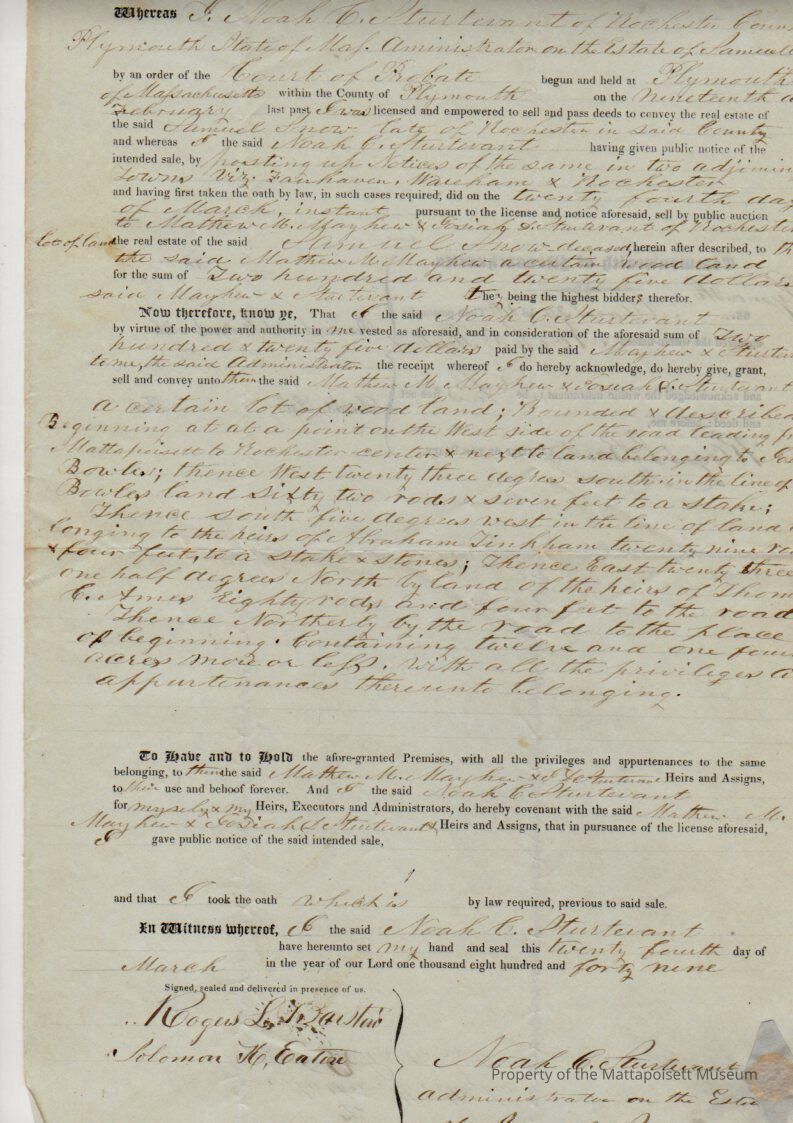 Whereas I, Noah C. Sturtevant of Rochester Coun
Plymouth State of Mas. Aministrator on the Estate of Samuel
by an order of the Court of Probate begun and held at Plymouth
of Massachusetts within the County of Plymouth on the nineteenth d
February last past I was licensed and empowered to sell and pass deeds to convey the real estate of
the said Samuel Snow late of Rochester in said County
and whereas I the said Noah C. Sturtevant having given public notice of the
intended sale, by posting up Notices of the same in two adjoinin
Towns Viz; Fairhaven, Wareham & Rochester
and having first taken the oath by law, in such cases required, did on the twenty fourth day
of March, instant pursuant to the license and notice aforesaid, sell by public auction
to Mathew M. Mayhew & Josiah Sturtevant of Rochester
lot of land the real estate of the said Samuel Snow deceased, herein after described, to th
the said Mathew M. Mayhew a certain wood land
for the sum of Two hundred and twenty five dollars
said Mayhew & Sturtevant they being the highest bidders therefor.
Now therefore, know ye, That I the said Noah C. Sturtevant
by virtue of the power and authority in me vested as aforesaid, and in consideration of the aforesaid sum of Two
hundred & twenty five dollars paid by the said Mayhew & Sturte
to me, the said Administrator the receipt whereof I do hereby acknowledge, do hereby give, grant,
sell and convey unto them the said Mathew M. Mayhew & Josiah S. Sturtevant
a certain lot of wood land; Bounded & described
Beginning at at a point on the West side of the road leading fr
Mattapoisett to Rochester center & next to land belonging to Jos
Bowles; thence West twenty three degrees south in the line of
Bowles land Sixty two rods & seven feet to a stake;
Thence south five degrees west in the line of land
longing to the heirs of Abraham Tinkham twenty nine ro
& four feet, to a stake & stones; Thence East twenty three
one half degrees North by land of the heirs of Thom
C. Ames Eighty rods and four feet to the road
Thence Northerly by the road to the place
of beginning. Containing twelve and one four
acres more or less. With all the privileges a
appurtenances thereunto belonging.
To Have and to Hold the afore-granted Premises, with all the privileges and appurtenances to the same
belonging, to them the said Mathew M. Mayhew & J. S. Sturtevant Heirs and Assigns,
to their use and behoof forever. And I the said Noah C. Sturtevant
for myself & my Heirs, Executors and Administrators, do hereby covenant with the said Mathew M.
Mayhew & Josiah S. Sturtevant Heirs and Assigns, that in pursuance of the license aforesaid,
I gave public notice of the said intended sale,
and that I took the oath which is by law required, previous to said sale.
In Witness whereof, I the said Noah C. Sturtevant
have hereunto set my hand and seal this twenty fourth day of
March in the year of our Lord one thousand eight hundred and forty nine
Signed, sealed and delivered in presence of us.
Rogers L. Barstow
Solomon K. Eaton
Noah C. Sturtevant
Property of the Mattapoisett Museum
administrator on the Esta